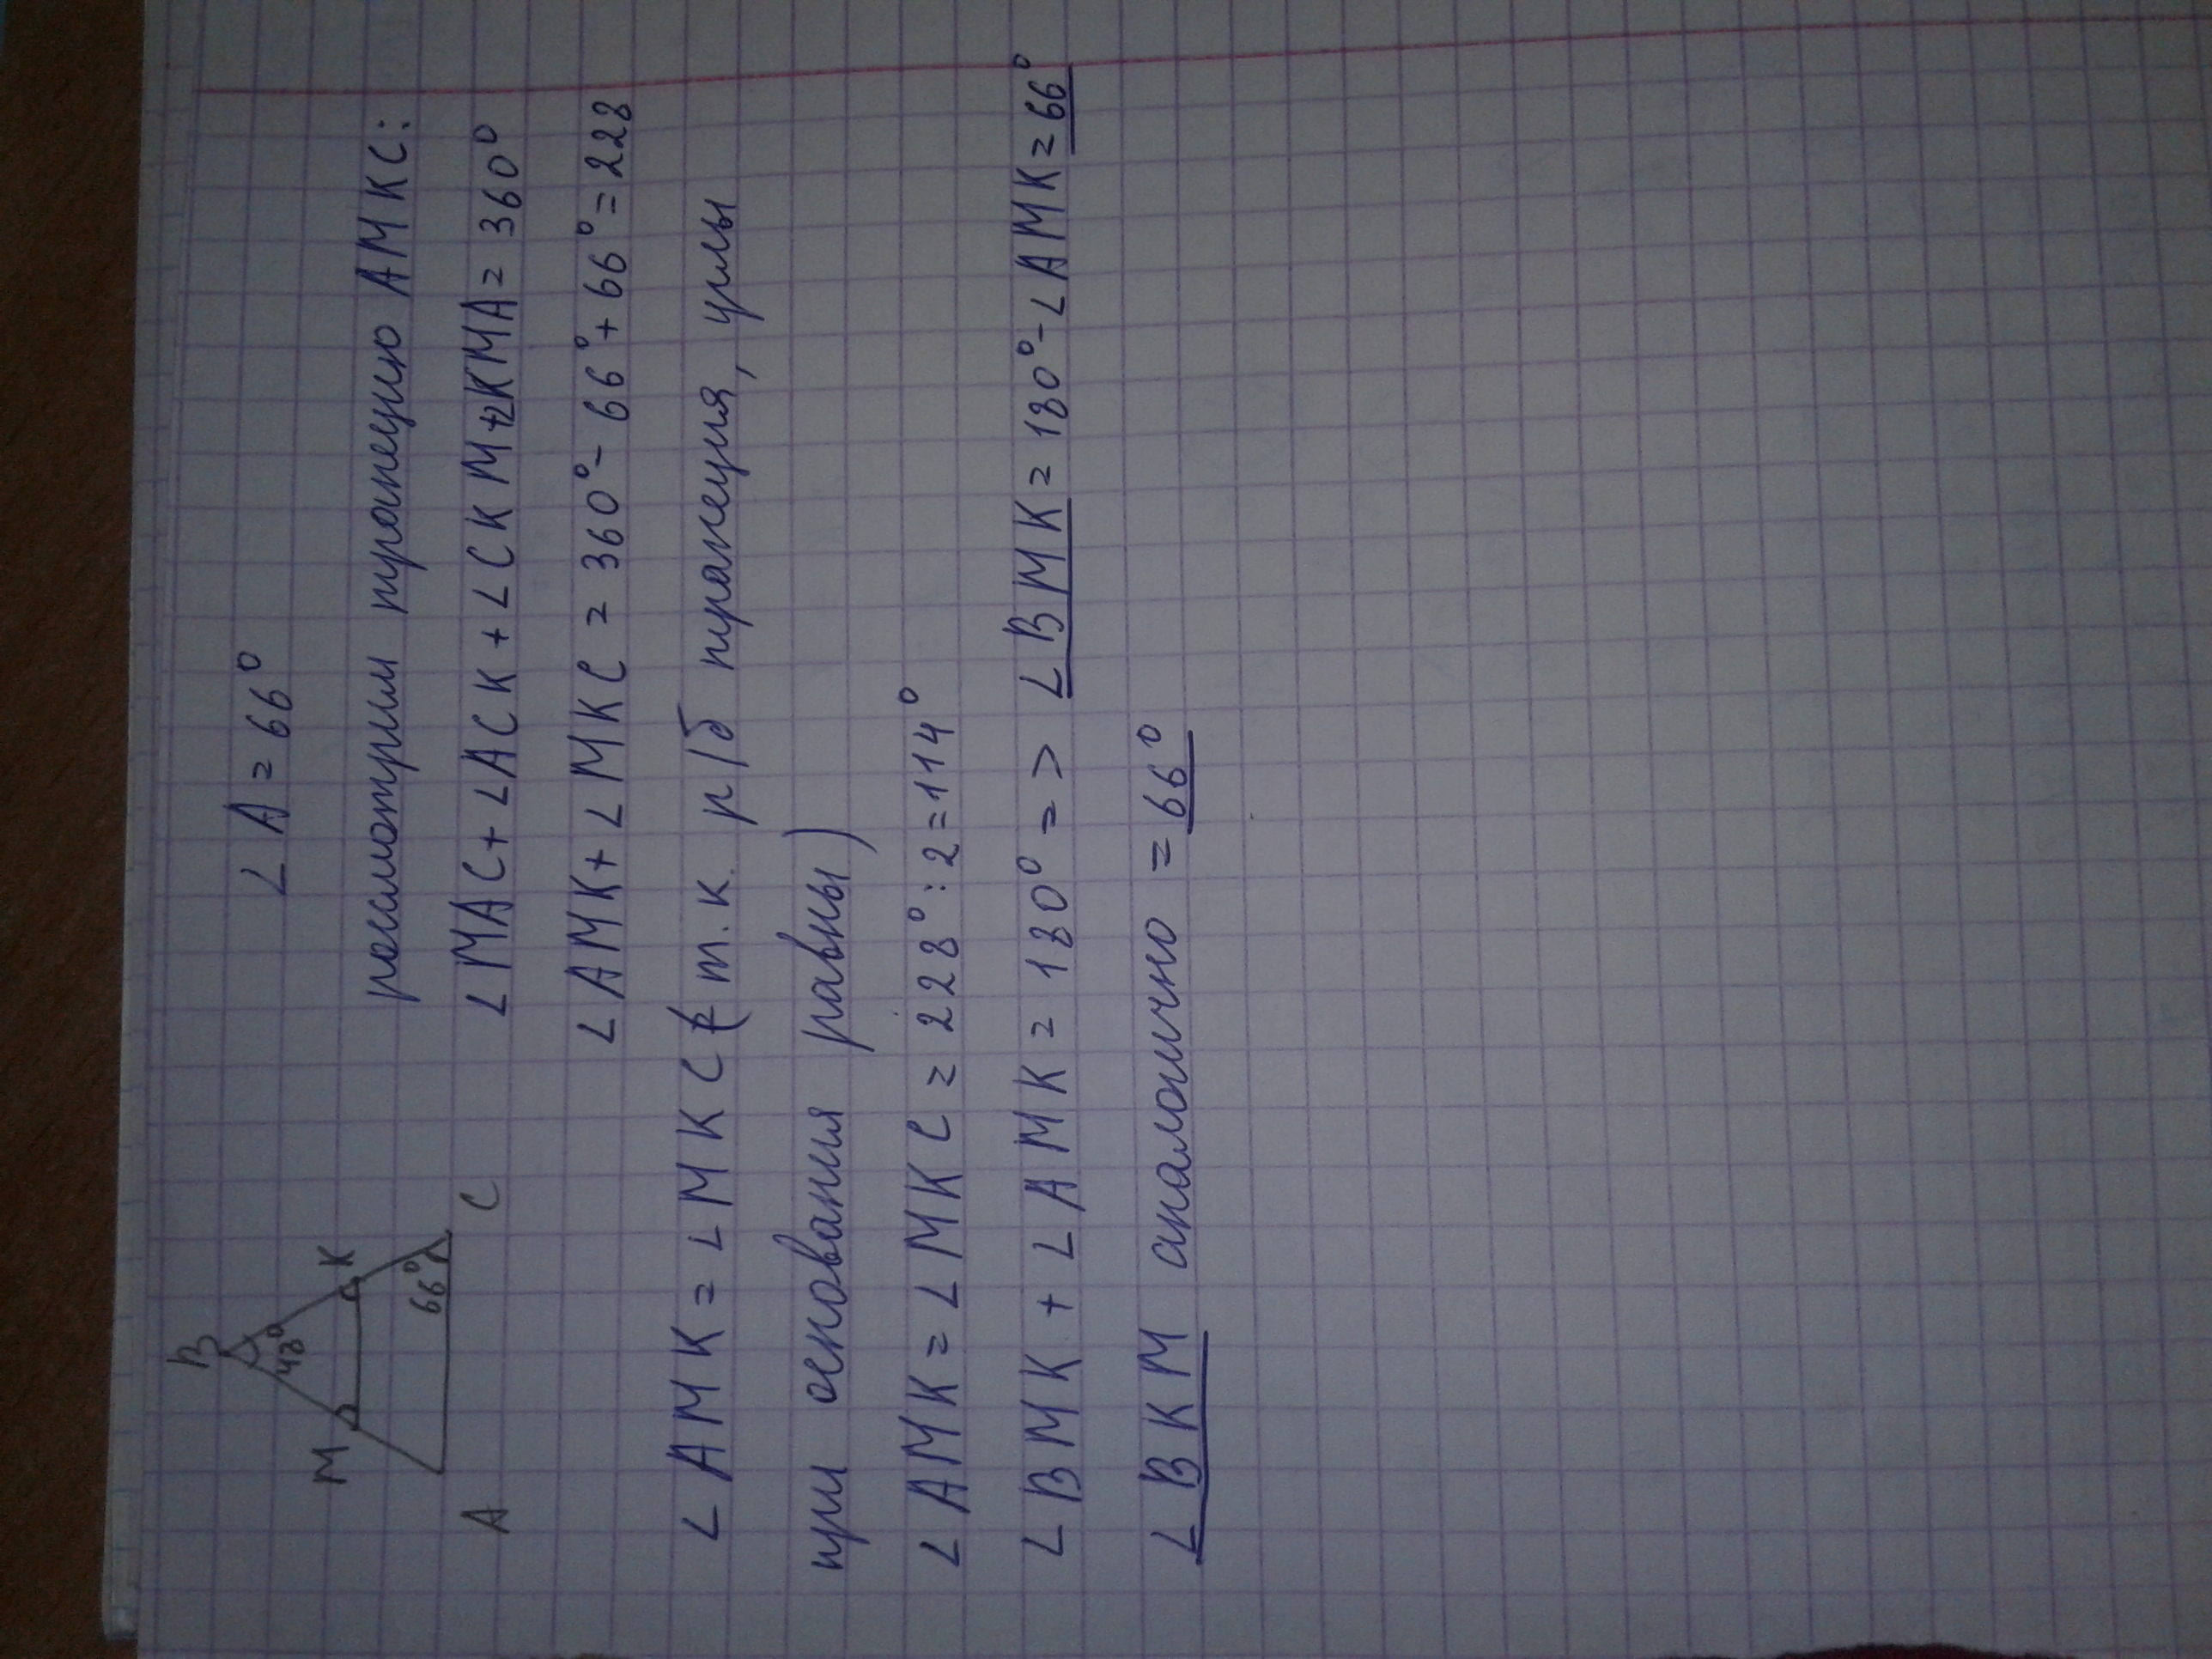 ∠A = 66°
B
48°
M
K
66°
A
C
рассмотрим трапецию AMKC:
∠MAC + ∠ACK + ∠CKM + ∠KMA = 360°
∠AMK + ∠MKC = 360° - 66° + 66° = 228
∠AMK = ∠MKC (т.к. р/б трапеция, углы
при основания равны)
∠AMK = ∠MKC = 228° : 2 = 114°
∠BMK + ∠AMK = 180° => ∠BMK = 180° - ∠AMK = 66°
∠BKM аналогично = 66°